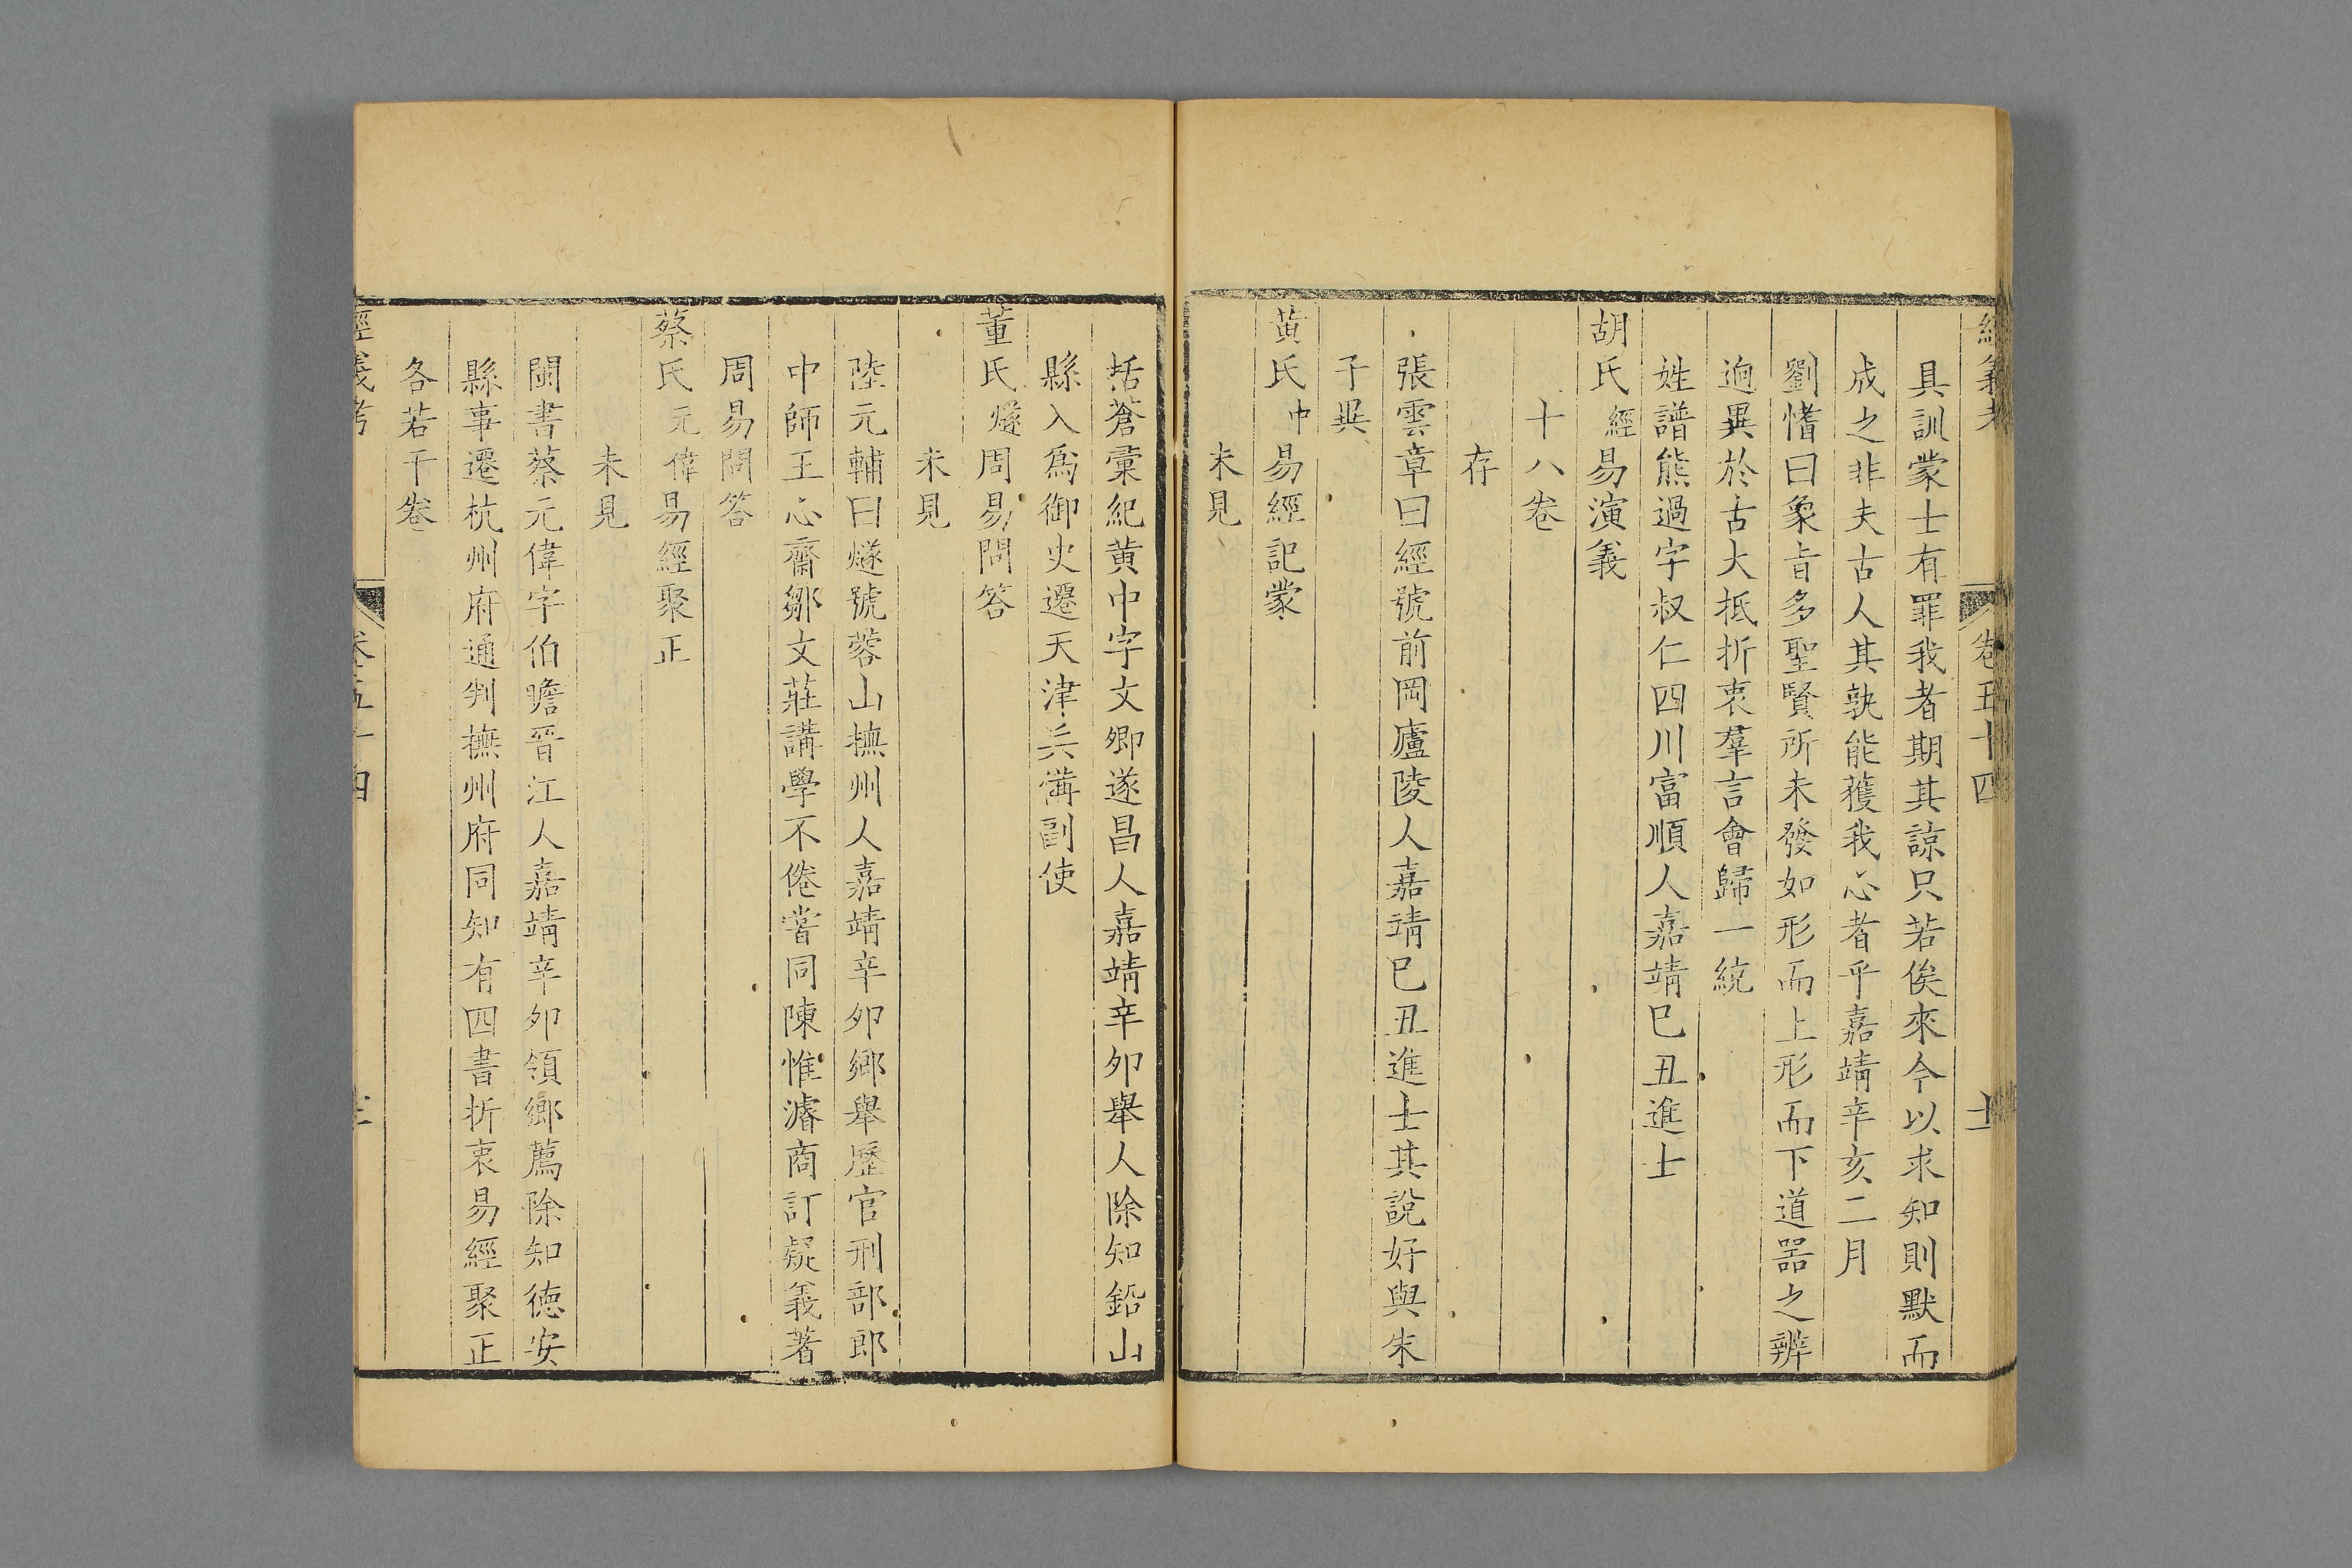 經義考 卷五十四 十一
具訓蒙士有罪我者期其諒只若俟來今以求知則默而
成之非夫古人其孰能獲我心者乎嘉靖辛亥二月
劉㦂曰象旨多聖賢所未發如形而上形而下道器之辨
逈異於古大抵折衷羣言會歸一統
姓譜熊過字叔仁四川富順人嘉靖巳丑進士
胡氏經易演義
十八卷
存
張雲章曰經號前岡廬陵人嘉靖巳丑進士其說好與朱
子異
黄氏中易經記蒙
未見
括蒼彙紀黄中字文卿遂昌人嘉靖辛夘舉人除知鉛山
縣入爲御史遷天津兵備副使
董氏燧周易問答
未見
陸元輔曰燧號蓉山撫州人嘉靖辛夘鄉舉歷官刑部郎
中師王心齋鄒文莊講學不倦嘗同陳惟濬商訂疑義著
周易問答
蔡氏元偉易經聚正
未見
閩書蔡元偉字伯瞻晉江人嘉靖辛夘領鄉薦除知德安
縣事遷杭州府通判撫州府同知有四書折衷易經聚正
各若干卷
經義考 卷五十四